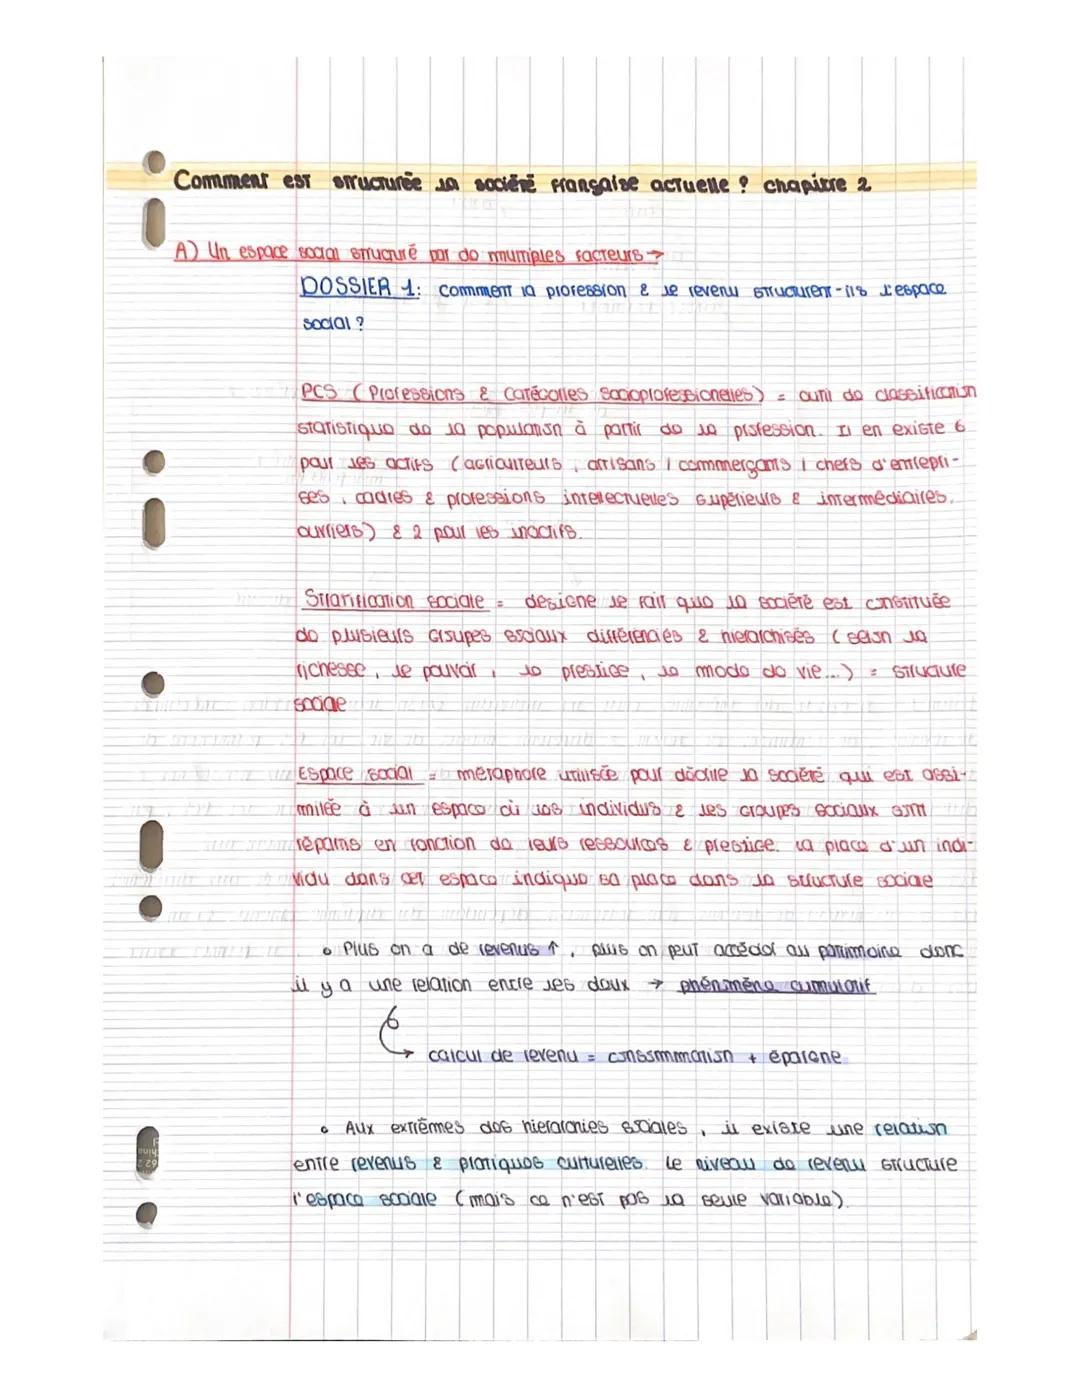 Comment est structurée la société française actuelle ? chapitre 2
A) Un espace social structuré par de multiples facteurs →
DOSSIER 1: comment la profession & le revenu structurent-ils l'espace
social ?
PCS (Professions & Catégories Socioprofessionelles) = outil de classification
statistique de la population à partir de la profession. Il en existe 6
pour les actifs (agriculteurs, artisans / commerçants / chefs d'entrepri-
ses, cadres & professions intellectuelles supérieurs & intermédiaires,
ouvriers) & 2 pour les inactifs.
Stratification sociale = designe le fait que la société est constituée
de plusieurs groupes sociaux différenciés & hierarchisés (selon la
richesse, le pouvoir, le prestige, le mode de vie...) = structure
sociale
Espace social = métaphore utilisée pour décrire la société qui est assi-
milée à un espace où les individus & les groupes sociaux sont
répartis en fonction de leurs ressources & prestige. La place d'un indi-
vidu dans cet espace indique sa place dans la structure sociale
• Plus on a de revenus ↑, plus on peut accéder au patrimoine donc
il y a une relation entre les deux → phénomène cumulatif
→ calcul de revenu = consommation + épargne
• Aux extrêmes des hierarchies sociales, il existe une relation
entre revenus & pratiques culturelles. Le niveau de revenu structure
l'espace sociale (mais ca n'est pas la seule variable).